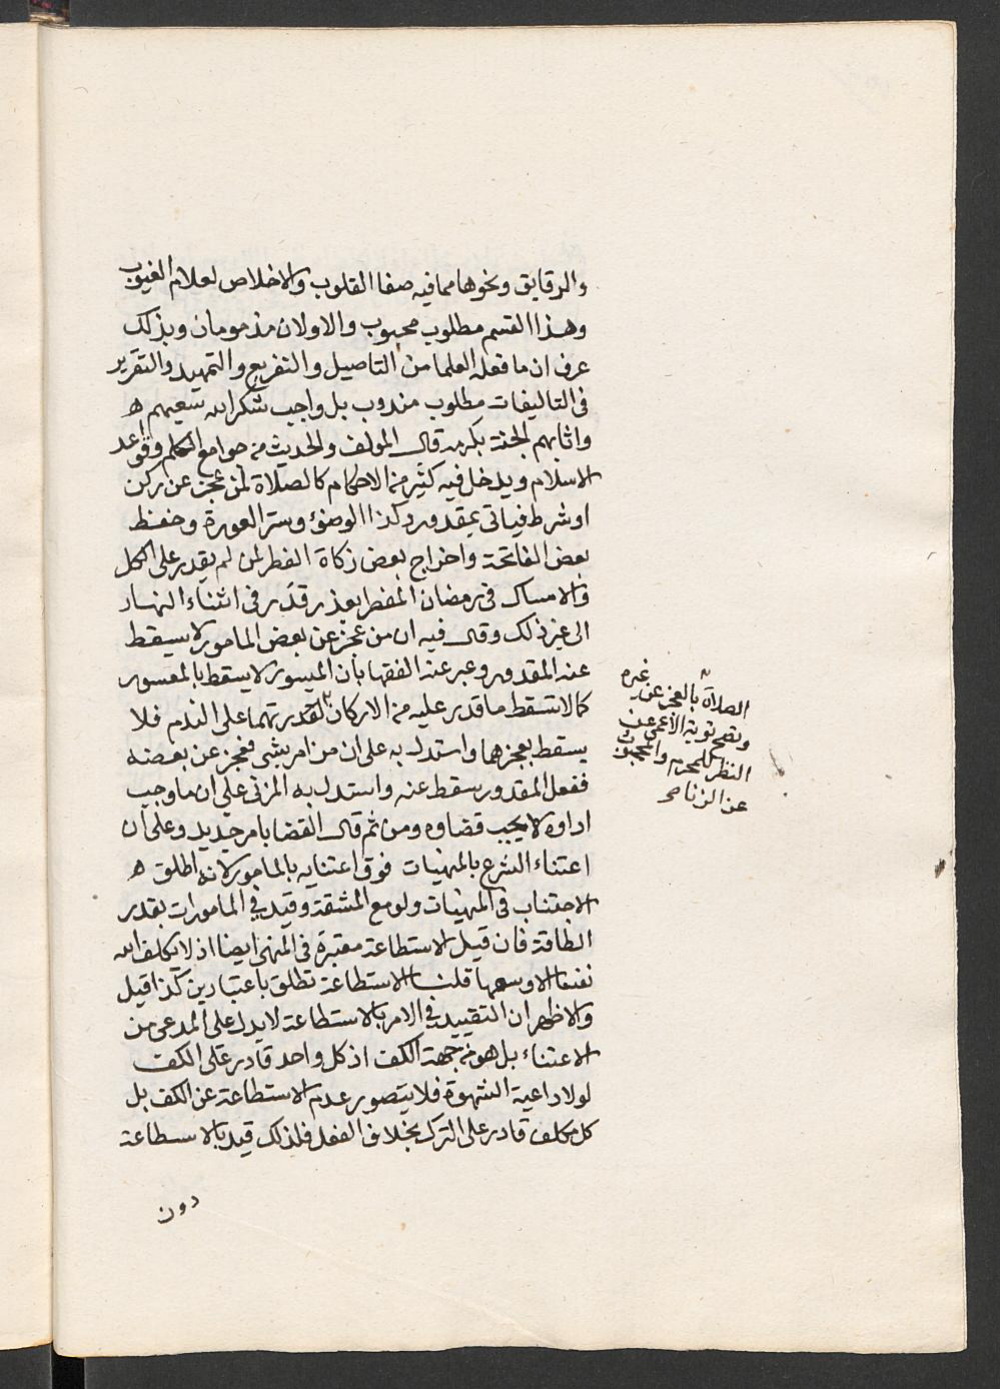 والرقايق ونحوها مما فيه صفا القلوب والاخلاص لعلام الغيوب
وهذا القسم مطلوب محبوب والاولان مذمومان وبذلك
عرف ان ما فعله العلما من التاصيل والتفريع والتمهيد والتقرير
فى التاليفات مطلوب مندوب بل واجب شكر الله سعيهم ه
واثابهم الجنة بكرمه قال المولف والحديث من جوامع الكلم وقواعد
الاسلام ويدخل فيه كثير من الاحكام كالصلاة لمن عجز عن ركن
او شرط فياتى بمقدوره وكذا الوضوء وستر العورة وحفظ
بعض الفاتحة واخراج بعض زكاة الفطر لمن لم يقدر على الكل
والامساك فى رمضان المفطر بعذر قدر فى اثناء النهار
الى غير ذلك وقال فيه ان من عجز عن بعض المامور لا يسقط
عنه المقدور وعبر عنه الفقها بان الميسور لا يسقط بالمعسور
كما لا تسقط ما قدر عليه من الاركان لقدرتهما على الندم فلا
يسقط بعجزها واستدل به على ان من امر بشى فعجز عن بعضه
ففعل المقدور سقط عنه واستدل به المزنى على ان ما وجب
اداوه لا يجب قضاوه ومن ثم قال القضا بامر جديد وعلى ان
اعتناء الشرع بالمنهيات فوق اعتنايه بالمامور لانه اطلق ه
الاجتناب فى المنهيات ولو مع المشقة وقيد فى المامورات بقدر
الطاقة فان قيل الاستطاعة معتبرة فى المنهى ايضا اذ لا يكلف الله
نفسا الا وسعها قلنا الاستطاعة تطلق باعتبارين كذا قيل
والاظهر ان التقييد فى الامر بالاستطاعة لا يدل على المدعى من
الاعتناء بل هو من جهة الكف اذ كل واحد قادر على الكف
لولا داعية الشهوة فلا يتصور عدم الاستطاعة عن الكف بل
كل مكلف قادر على الترك بخلاف الفعل فلذلك قيد بالاسطاعة
دون
الصلاة بالعجز عن غيره
وتصح توبة الأعمى عن
النظر للمحرم والمجبوب
عن الزنا صح